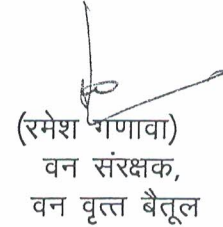 (रमेश गणावा)
वन संरक्षक,
वन वृत्त बैतूल